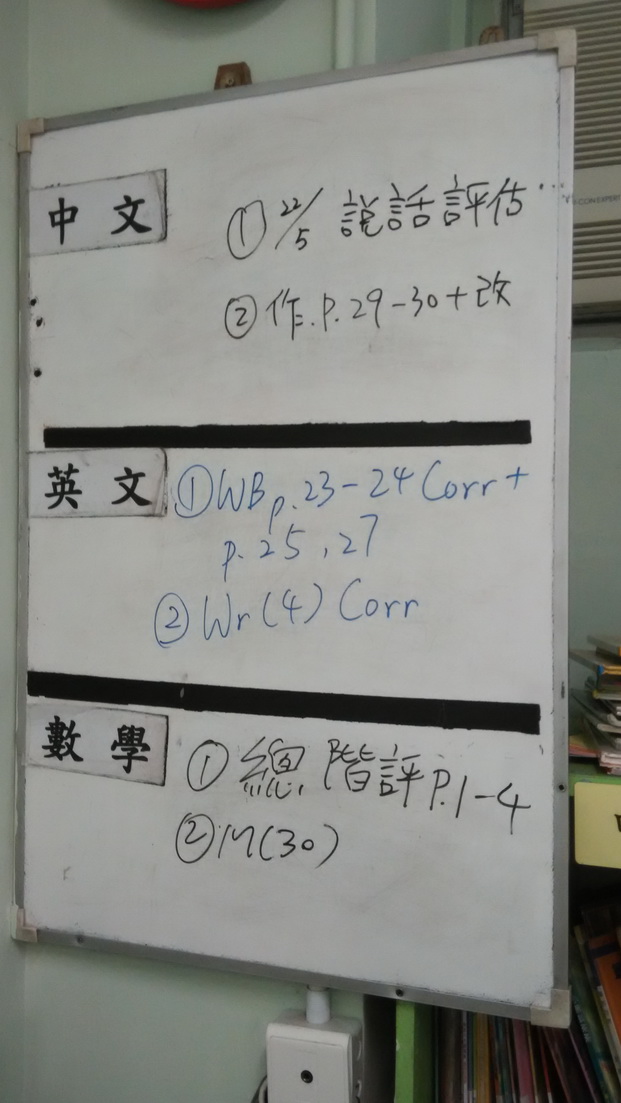 中文
① 22/5 說話評估
② 作.P.29-30+改
英文
① WB p.23-24 Corr +
p.25, 27
② Wr(4) Corr
數學
① 總階評 P.1-4
② M(30)